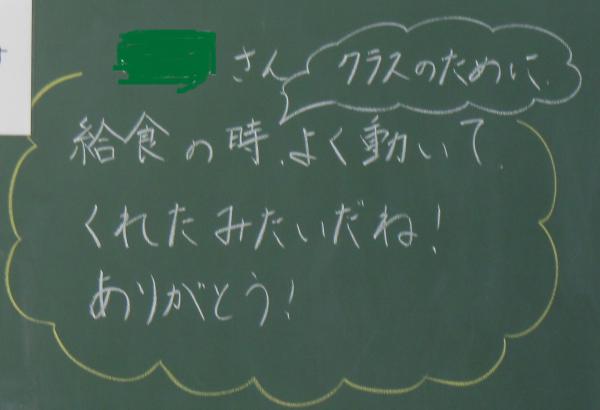 さん
クラスのために、
給食の時、よく動いて、
くれたみたいだね！
ありがとう！